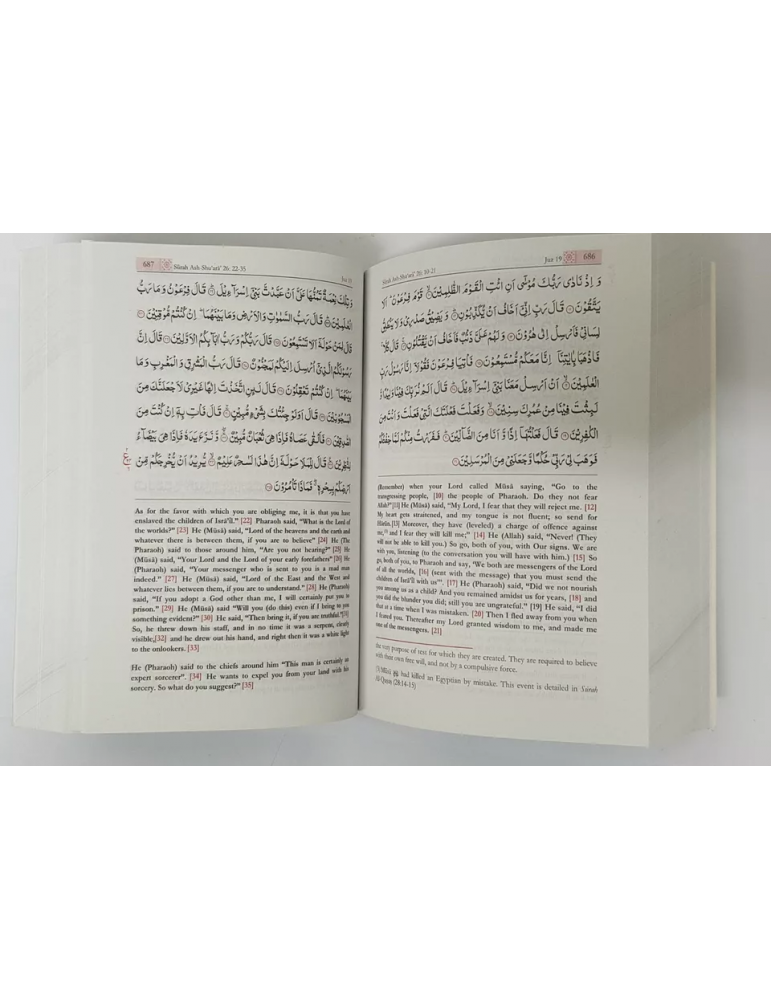 Sūrah Ash-Shu'arā' 26: 10-21 Juz 19 686
وَ اِذْ نَادٰى رَبُّكَ مُوْسٰٓى اَنِ ائْتِ الْقَوْمَ الظّٰلِمِيْنَ ۙ قَوْمَ فِرْعَوْنَ ؕ اَلَا
يَتَّقُوْنَ قَالَ رَبِّ اِنِّيْٓ اَخَافُ اَنْ يُّكَذِّبُوْنِ ؕ وَ يَضِيْقُ صَدْرِيْ وَلَا يَنْطَلِقُ
لِسَانِيْ فَاَرْسِلْ اِلٰى هٰرُوْنَ وَ لَهُمْ عَلَيَّ ذَنْۢبٌ فَاَخَافُ اَنْ يَّقْتُلُوْنِ ۚ قَالَ كَلَّا ۚ
فَاذْهَبَا بِاٰيٰتِنَاۤ اِنَّا مَعَكُمْ مُّسْتَمِعُوْنَ فَاْتِيَا فِرْعَوْنَ فَقُوْلَاۤ اِنَّا رَسُوْلُ رَبِّ
الْعٰلَمِيْنَ ۙ اَنْ اَرْسِلْ مَعَنَا بَنِيْٓ اِسْرَآءِيْلَ ؕ قَالَ اَلَمْ نُرَبِّكَ فِيْنَا وَلِيْدًا وَّ
لَبِثْتَ فِيْنَا مِنْ عُمُرِكَ سِنِيْنَ ۙ وَ فَعَلْتَ فَعْلَتَكَ الَّتِيْ فَعَلْتَ وَ اَنْتَ مِنَ
الْكٰفِرِيْنَ قَالَ فَعَلْتُهَاۤ اِذًا وَّ اَنَا مِنَ الضَّآلِّيْنَ ؕ فَفَرَرْتُ مِنْكُمْ لَمَّا خِفْتُكُمْ
فَوَهَبَ لِيْ رَبِّيْ حُكْمًا وَّ جَعَلَنِيْ مِنَ الْمُرْسَلِيْنَ
(Remember) when your Lord called Mūsā saying, "Go to the
transgressing people, [10] the people of Pharaoh. Do they not fear
Allah?"[11] He (Mūsā) said, "My Lord, I fear that they will reject me. [12]
My heart gets straitened, and my tongue is not fluent; so send for
Hārūn.[13] Moreover, they have (leveled) a charge of offence against
me,(1) and I fear they will kill me;" [14] He (Allah) said, "Never! (They
will not be able to kill you.) So go, both of you, with Our signs. We are
with you, listening (to the conversation you will have with him.) [15] So
go, both of you, to Pharaoh and say, "We both are messengers of the Lord
of all the worlds, [16] (sent with the message) that you must send the
children of Isrā'īl with us"'. [17] He (Pharaoh) said, "Did we not nourish
you among us as a child? And you remained amidst us for years, [18] and
you did the blunder you did; still you are ungrateful." [19] He said, "I did
that at a time when I was mistaken. [20] Then I fled away from you when
I feared you. Thereafter my Lord granted wisdom to me, and made me
one of the messengers. [21]
the very purpose of test for which they are created. They are required to believe
with their own free will, and not by a compulsive force.
(1) Mūsā had killed an Egyptian by mistake. This event is detailed in Sūrah
Al-Qasas (28:14-15)
687 Sūrah Ash-Shu'arā' 26: 22-35 Juz 19
وَ تِلْكَ نِعْمَةٌ تَمُنُّهَا عَلَيَّ اَنْ عَبَّدْتَّ بَنِيْٓ اِسْرَآءِيْلَ ؕ قَالَ فِرْعَوْنُ وَ مَا رَبُّ
الْعٰلَمِيْنَ ؕ قَالَ رَبُّ السَّمٰوٰتِ وَ الْاَرْضِ وَ مَا بَيْنَهُمَا ؕ اِنْ كُنْتُمْ مُّوْقِنِيْنَ
قَالَ لِمَنْ حَوْلَهٗۤ اَلَا تَسْتَمِعُوْنَ قَالَ رَبُّكُمْ وَ رَبُّ اٰبَآئِكُمُ الْاَوَّلِيْنَ قَالَ اِنَّ
رَسُوْلَكُمُ الَّذِيْٓ اُرْسِلَ اِلَيْكُمْ لَمَجْنُوْنٌ قَالَ رَبُّ الْمَشْرِقِ وَ الْمَغْرِبِ وَ مَا
بَيْنَهُمَا ؕ اِنْ كُنْتُمْ تَعْقِلُوْنَ قَالَ لَئِنِ اتَّخَذْتَ اِلٰهًا غَيْرِيْ لَاَجْعَلَنَّكَ مِنَ
الْمَسْجُوْنِيْنَ قَالَ اَوَلَوْ جِئْتُكَ بِشَيْءٍ مُّبِيْنٍ ۚ قَالَ فَاْتِ بِهٖۤ اِنْ كُنْتَ مِنَ
الصّٰدِقِيْنَ فَاَلْقٰى عَصَاهُ فَاِذَا هِيَ ثُعْبَانٌ مُّبِيْنٌ ۚ وَّ نَزَعَ يَدَهٗ فَاِذَا هِيَ بَيْضَآءُ
لِلنّٰظِرِيْنَ قَالَ لِلْمَلَاِ حَوْلَهٗۤ اِنَّ هٰذَا لَسٰحِرٌ عَلِيْمٌ ۙ يُّرِيْدُ اَنْ يُّخْرِجَكُمْ مِّنْ
اَرْضِكُمْ بِسِحْرِهٖ ۖ فَمَاذَا تَاْمُرُوْنَ
As for the favor with which you are obliging me, it is that you have
enslaved the children of Isrā'īl." [22] Pharaoh said, "What is the Lord of
the worlds?" [23] He (Mūsā) said, "Lord of the heavens and the earth and
whatever there is between them, if you are to believe" [24] He (The
Pharaoh) said to those around him, "Are you not hearing?" [25] He
(Mūsā) said, "Your Lord and the Lord of your early forefathers" [26] He
(Pharaoh) said, "Your messenger who is sent to you is a mad man
indeed." [27] He (Mūsā) said, "Lord of the East and the West and
whatever lies between them, if you are to understand." [28] He (Pharaoh)
said, "If you adopt a God other than me, I will certainly put you in
prison." [29] He (Mūsā) said "Will you (do this) even if I bring to you
something evident?" [30] He said, "Then bring it, if you are truthful."[31]
So, he threw down his staff, and in no time it was a serpent, clearly
visible,[32] and he drew out his hand, and right then it was a white light
to the onlookers. [33]
He (Pharaoh) said to the chiefs around him "This man is certainly an
expert sorcerer". [34] He wants to expel you from your land with his
sorcery. So what do you suggest?" [35]